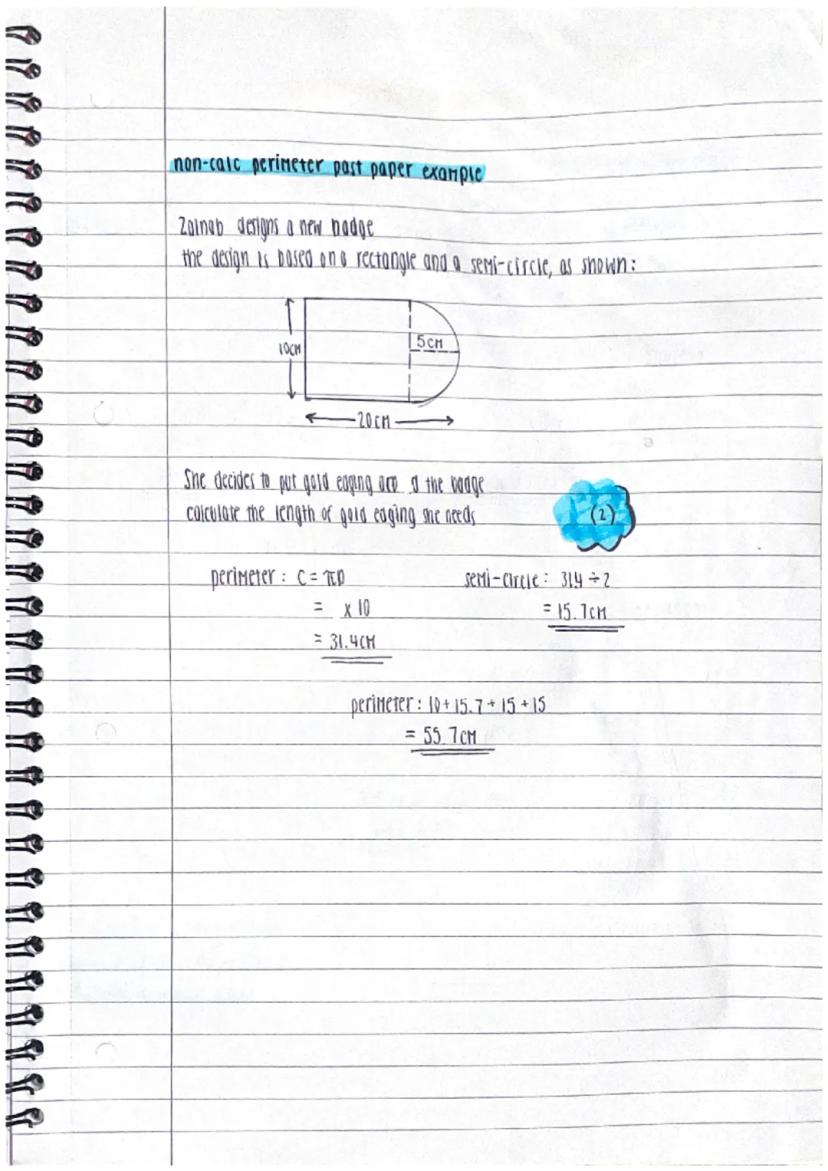 non-calc perimeter past paper example
Zainab designs a new badge
the design is based on a rectangle and a semi-circle, as shown:
10cm
5cm
20cm
She decides to put gold edging the badge
calculate the length of gold edging she needs
(2)
perimeter: C = πD
= x 10
= 31.4cm
semi-circle: 314 ÷ 2
= 15.7cm
perimeter: 10 + 15.7 + 15 + 15
= 55.7cm